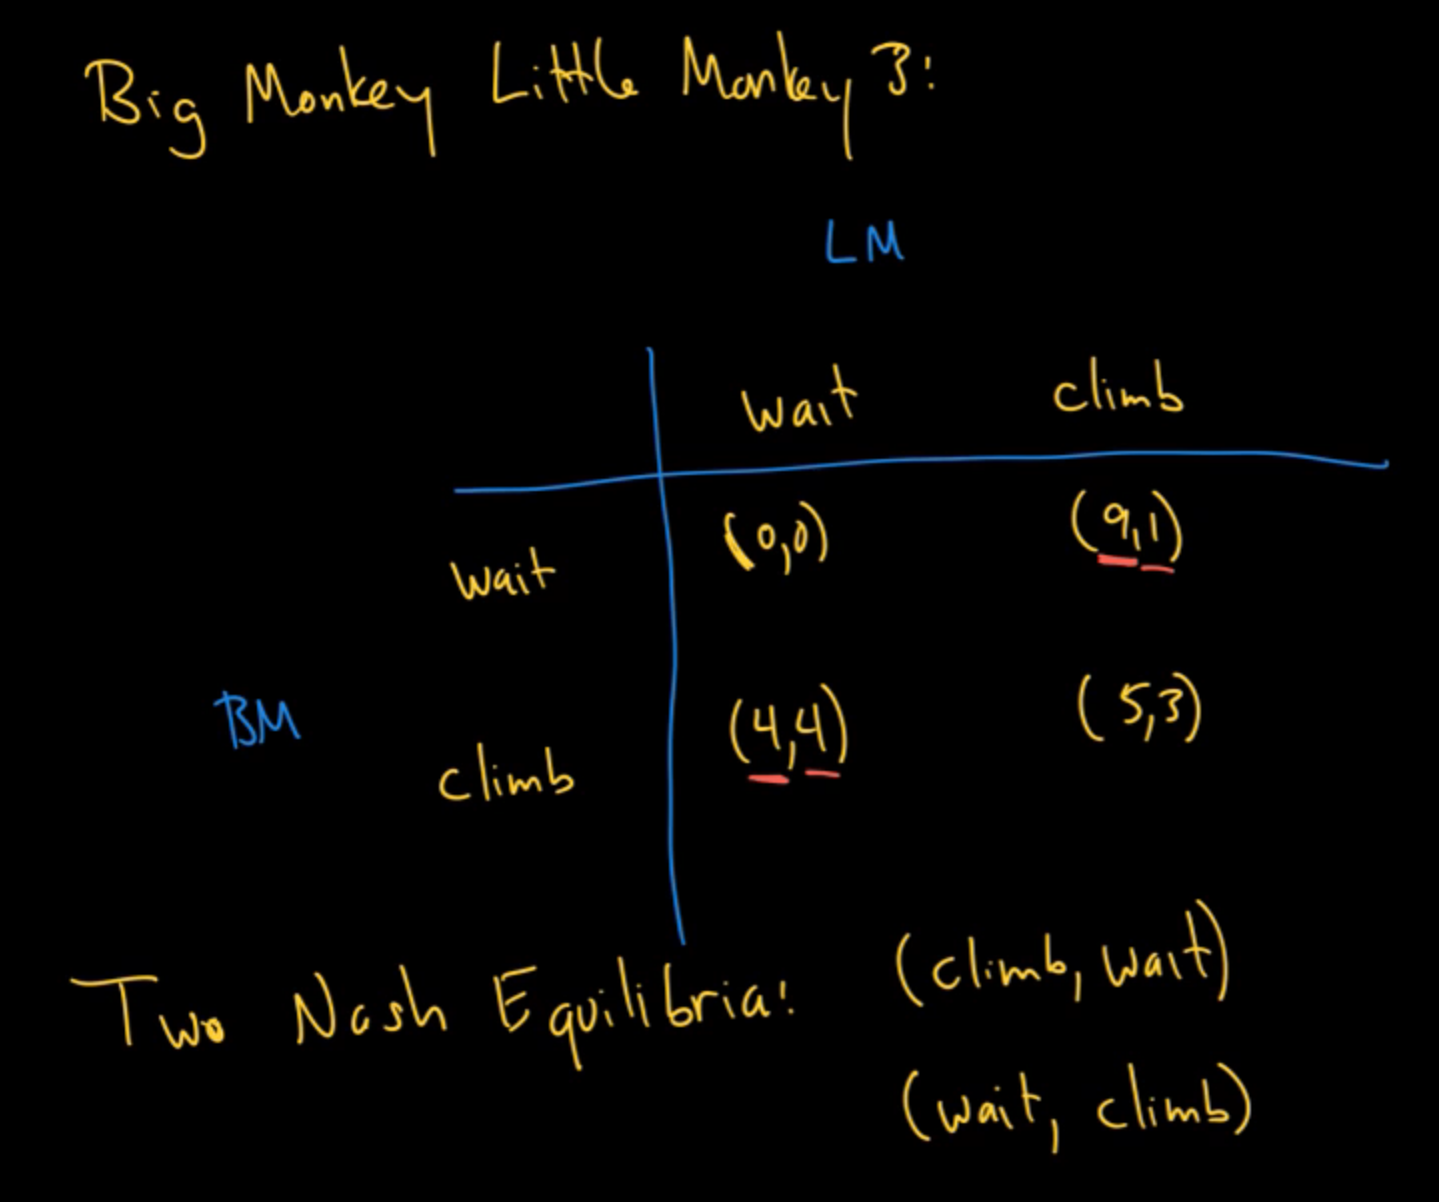 Big Monkey Little Monkey 3:
LM
wait climb
wait (0,0) (9,1)
BM
climb (4,4) (5,3)
Two Nash Equilibria: (climb, wait)
(wait, climb)